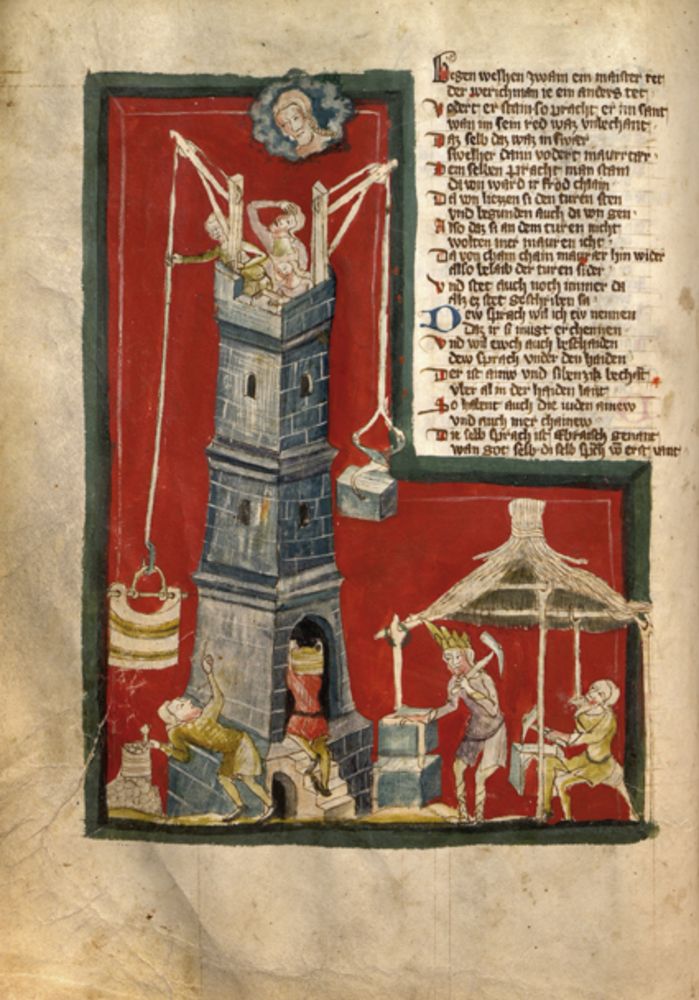 welhen zwain ein maister ret
der werichman ie ein anders tet
Vodert er stain so pracht er im sant
wan im sein red waz vnbechant
Daz selb daz waz in swær
swelher dann vodert
Dem selben pracht man stain
da von ward ir fröd chlain
Da von liezzen si den turen sten
vnd begunden auch da von gen
Also daz si an dem turen nicht
wolten mer mauren icht
Da von cham chain maurær hin wider
also belaib der turen sider
Vnd stet auch noch immer da
als ez stet geschriben sa
Dew sprach wil ich ew nennen
Daz ir si mugt erchennen
Vnd wil ewch auch beschaiden
dew sprach vnder den haiden
Der ist ainew vnd sibenzik
vber al in der haiden lant
So habent auch die iuden ainew
vnd auch mer chainew
Die selb sprach ist Ebraisch genant
wan got selb di selb erst vant